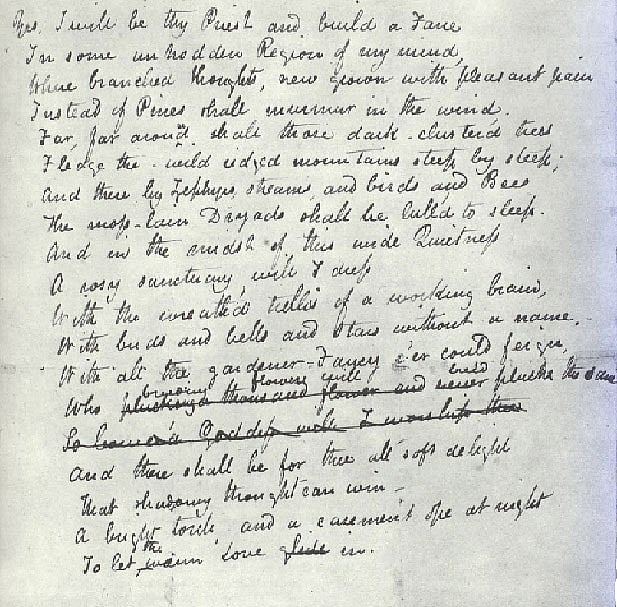 Yes, I will be thy Priest and build a Fane
In some untrodden Region of my mind,
Where branched thoughts, new grown with pleasant pain
Instead of Pines shall murmur in the wind.
Far, far around shall those dark-cluster'd trees
Fledge the wild ridged mountains steep by steep;
And there by Zephyrs streams and birds and Bees
The moss-lain Dryads shall be lull'd to sleep.
And in the midst of this wide Quietness
A rosy sanctuary will I dress
With the wreath'd trellis of a working brain,
With buds and bells and stars without a name.
With all the gardener-Fancy e'er could feign,
breeding flowers will breed
Who plucking a thousand flower and never plucks the same
So bower'd Goddess will I worship thee
And there shall be for thee all soft delight
That shadowy thought can win -
A bright torch and a casement ope at night
the
To let warm Love glide in.